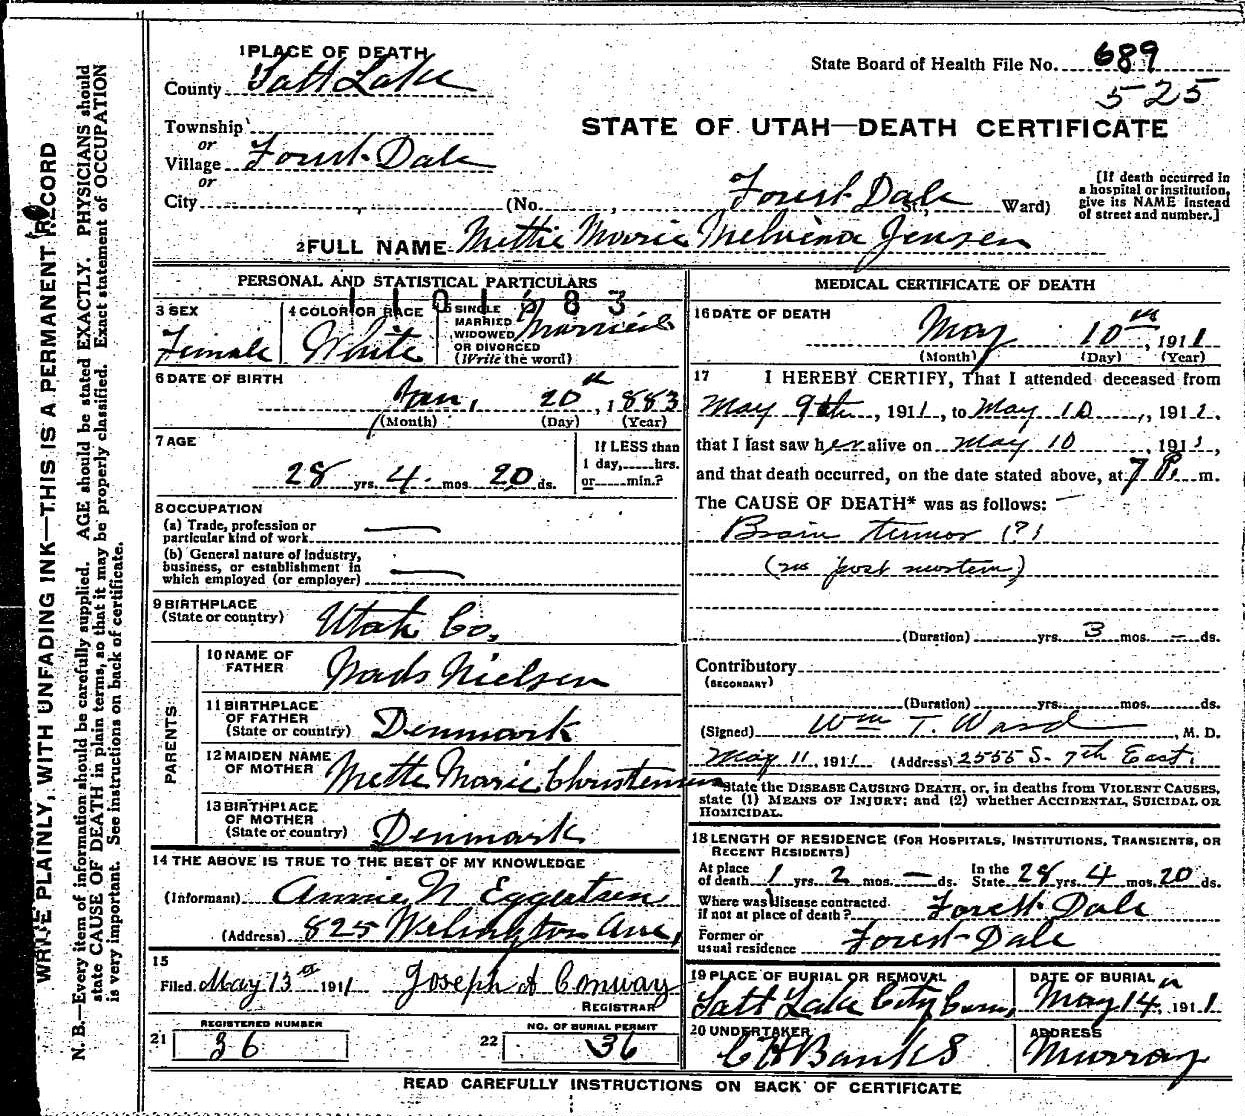 1 PLACE OF DEATH
County Salt Lake
State Board of Health File No. 689
525
Township
or
Village Forest Dale
or
City (No. , Forest Dale St., Ward)
STATE OF UTAH—DEATH CERTIFICATE
[If death occurred in
a hospital or institution,
give its NAME instead
of street and number.]
2 FULL NAME Mettie Marie Melvina Jensen
PERSONAL AND STATISTICAL PARTICULARS
1101583
3 SEX
Female
4 COLOR OR RACE
White
5 SINGLE
MARRIED
WIDOWED
OR DIVORCED
(Write the word)
Married
6 DATE OF BIRTH
Jan, 20th, 1883
(Month) (Day) (Year)
7 AGE
28 yrs. 4 mos 20 ds.
If LESS than
1 day, hrs.
or min.?
8 OCCUPATION
(a) Trade, profession or
particular kind of work
(b) General nature of Industry,
business, or establishment in
which employed (or employer)
9 BIRTHPLACE
(State or country) Utah Co,
PARENTS
10 NAME OF
FATHER Mads Nielsen
11 BIRTHPLACE
OF FATHER
(State or country) Denmark
12 MAIDEN NAME
OF MOTHER Mette Marie Christensen
13 BIRTHPLACE
OF MOTHER
(State or country) Denmark
14 THE ABOVE IS TRUE TO THE BEST OF MY KNOWLEDGE
(Informant) Annie N Eggertsen
(Address) 825 Welington Ave,
15
Filed May 13 1911 Joseph A Conway
REGISTRAR
REGISTERED NUMBER
21 36
NO. OF BURIAL PERMIT
22 36
MEDICAL CERTIFICATE OF DEATH
16 DATE OF DEATH
May 10th, 1911
(Month) (Day) (Year)
17 I HEREBY CERTIFY, That I attended deceased from
May 9th, 1911, to May 10, 1911.
that I last saw her alive on May 10 1911,
and that death occurred, on the date stated above, at 7 P. m.
The CAUSE OF DEATH* was as follows:
Brain tumor (?)
(no post mortem)
(Duration) yrs. 3 mos. – ds.
Contributory
(SECONDARY)
(Duration) yrs. mos. ds.
(Signed) Wm T. Ward, M. D.
May 11, 1911 (Address) 2555 S. 7th East.
*State the DISEASE CAUSING DEATH, or, in deaths from VIOLENT CAUSES,
state (1) MEANS OF INJURY; and (2) whether ACCIDENTAL, SUICIDAL OR
HOMICIDAL.
18 LENGTH OF RESIDENCE (FOR HOSPITALS, INSTITUTIONS, TRANSIENTS, OR
RECENT RESIDENTS)
At place
of death 1 yrs. 2 mos. – ds. In the
State 28 yrs. 4 mos. 20 ds.
Where was disease contracted.
if not at place of death? Forest Dale
Former or
usual residence Forest Dale
19 PLACE OF BURIAL OR REMOVAL
Salt Lake City Cem,
DATE OF BURIAL
May 14, 1911
20 UNDERTAKER
C H Banks
ADDRESS
Murray
READ CAREFULLY INSTRUCTIONS ON BACK OF CERTIFICATE
WRITE PLAINLY, WITH UNFADING INK—THIS IS A PERMANENT RECORD
N. B.—Every item of information should be carefully supplied. AGE should be stated EXACTLY. PHYSICIANS should
state CAUSE OF DEATH in plain terms, so that it may be properly classified. Exact statement of OCCUPATION
is very important. See instructions on back of certificate.